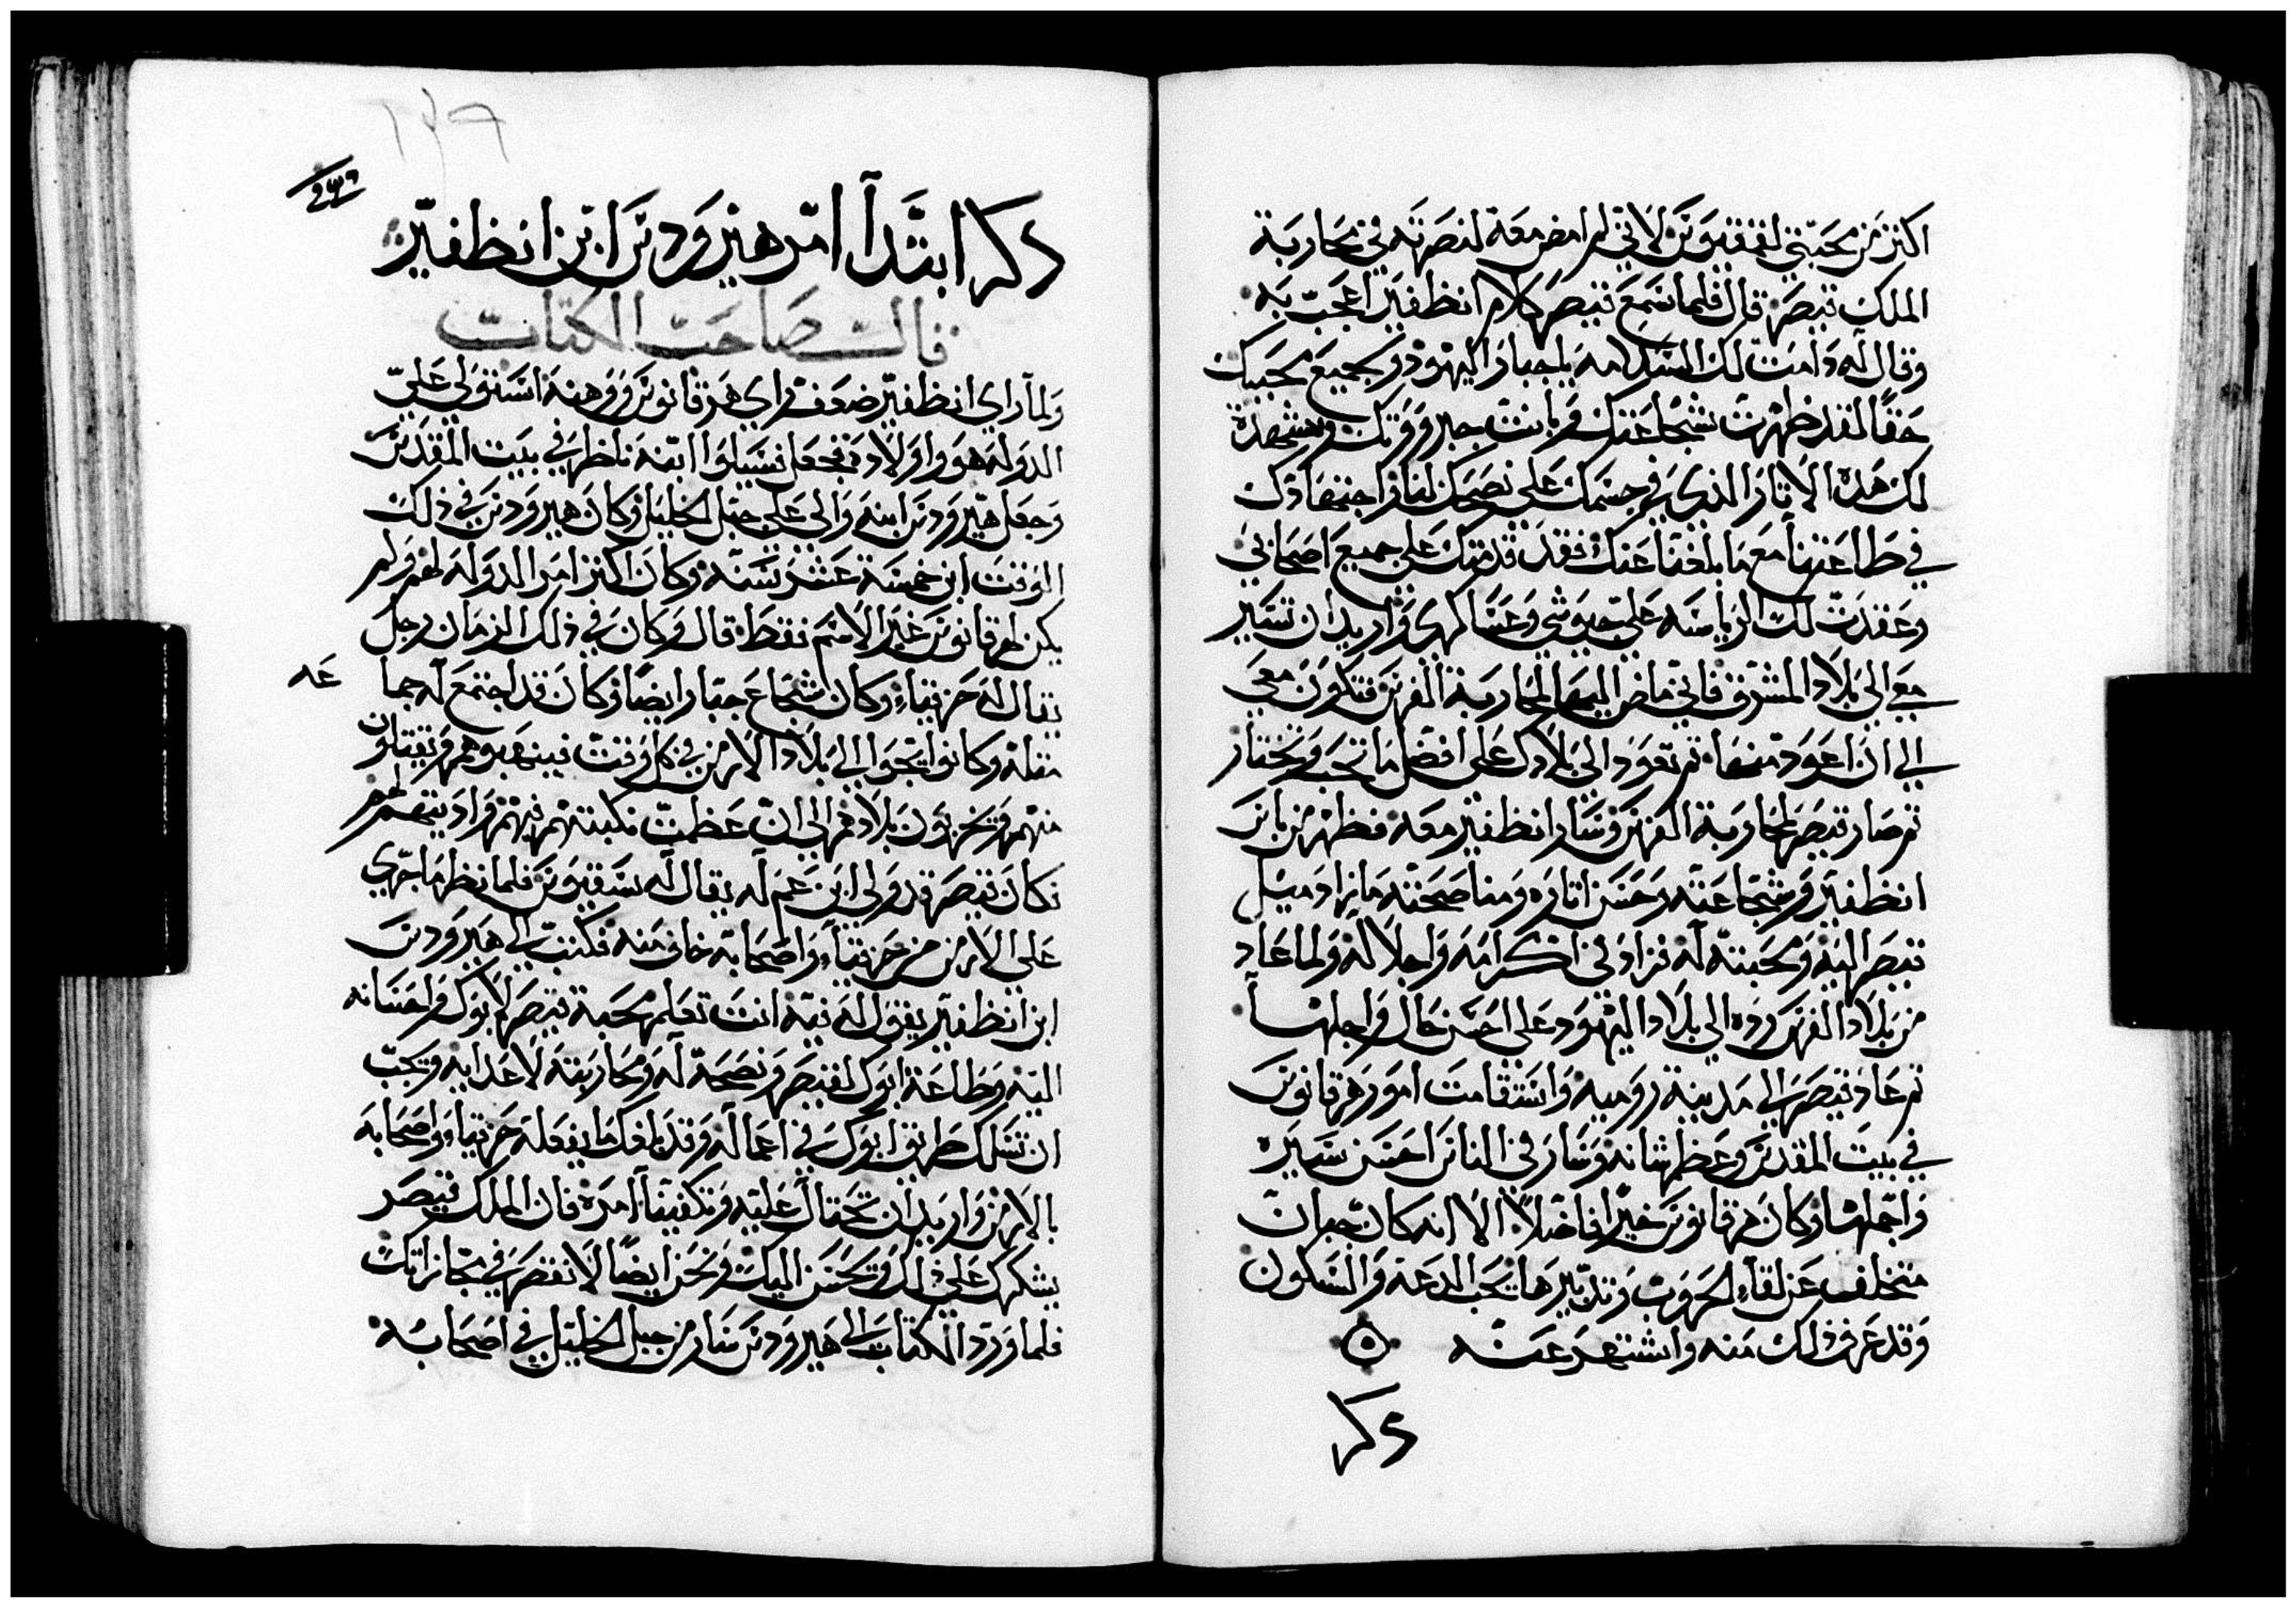 اكثر من محبتي لفقيوس لاني لم امض معه لنصرته في محاربة
الملك قيصر قال فلما سمع قيصر كلام انظفير اعجب به
وقال له دامت لك السلامه يا جبار اليهود ولجميع محبيك
حقا لقد ظهرت شجاعتك وبانت جبروتك ويشهد
لك هذه الاثار الذي في جسمك على نصحك لنا واجتهادك
في طاعتنا مع ما بلغنا عنك فقد قدمتك على جميع اصحابي
وعقدت لك الرياسه على جيوشي وعساكري واريد ان تسير
معي الى بلاد المشرق فاني ماض اليها لمحاربة الفرس فتكون معي
الي ان اعود منها ثم تعود الى بلادك على افضل ما تحب وتختار
ثم صار قيصر لمحاربة الفرس وسار انظفير معه فظهر من باس
انظفير وشجاعته وحسن اثاره ومناصحته ما زاد ميل
قيصر اليه ومحبته له فزاد في اكرامه واجلاله ولما عاد
من بلاد الفرس رده الي بلاد اليهود على احسن حال واجلها
ثم عاد قيصر الي مدينة روميه واستقامت امور هرقانوس
في بيت المقدس وعظم شانه وسار في الناس احسن سيره
واجملها وكان هرقانوس خيرا فاضلا الا انه كان جبان
متخلف عن لقاء الحروب وتدبيرها يحب الدعة والسكون
وقد عرف ذلك منه واشتهر عنه ه
ذكر
ذكر ابتدآ امر هيرودس ابن انظفير
قالـ صاحب الكتاب
ولما راي انظفير ضعف راي هرقانوس ووهنه استولى على
الدوله هو واولاده فجعل فسيلوا ابنه ناظر في بيت المقدس
وجعل هيرودس ابنه والى على جبل الخليل وكان هيرودس في ذلك
الوقت ابن خمسة عشر سنه وكان اكثر امر الدوله لهم ولم
يكن لهرقانوس غير الاسم فقط قال وكان في ذلك الزمان رجل
يقال له حزقياء وكان شجاع جبار ايضا وكان قد اجتمع له جما
عه
مثله وكانوا يتجوا الى بلاد الارمن في كل وقت فينهبوهم ويقتلون
منهم ويخربون بلادهم الى ان عظمت نكبتهم فيهم واديتهم لهم
فكان قيصر قد ولي ابن عم له يقال له سقيوس فلما نظر ما جري
على الارمن من حزقياء واصحابه خاف منه فكتب الي هيرودس
ابن انظفير يقول له فيه انت تعلم محبة قيصر لابوك واحسانه
اليه وطاعة ابوك لقيصر ونصحه له ومحاربته لاعدايه ويجب
ان تسلك طريق ابوك في اعماله وقد بلغك ما يفعله حزقياء واصحابه
بالارمن واريد ان تحتال عليه وتكفينا امره فان الملك قيصر
يشكرك على ذلك ويحسن اليك ونحن ايضا لا نقصر في مجازاتك
فلما ورد الكتاب الي هيرودس سار من جبل الخليل في اصحابه